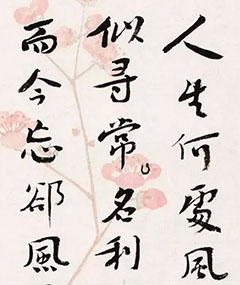 人生何處風
似尋常名利
而今忘卻風